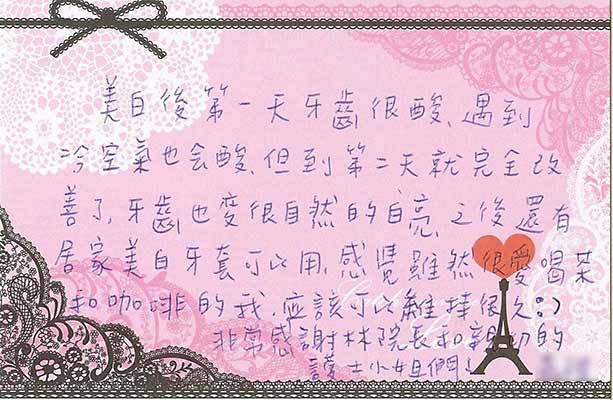 美白後第一天牙齒很酸、遇到
冷空氣也会酸、但到第二天就完全改
善了、牙齒也变很自然的白亮、之後還有
居家美白牙套可以用、感覺雖然很愛喝茶
和咖啡的我、應該可以維持很久:)
非常感謝林院長和親切的
護士小姐們!